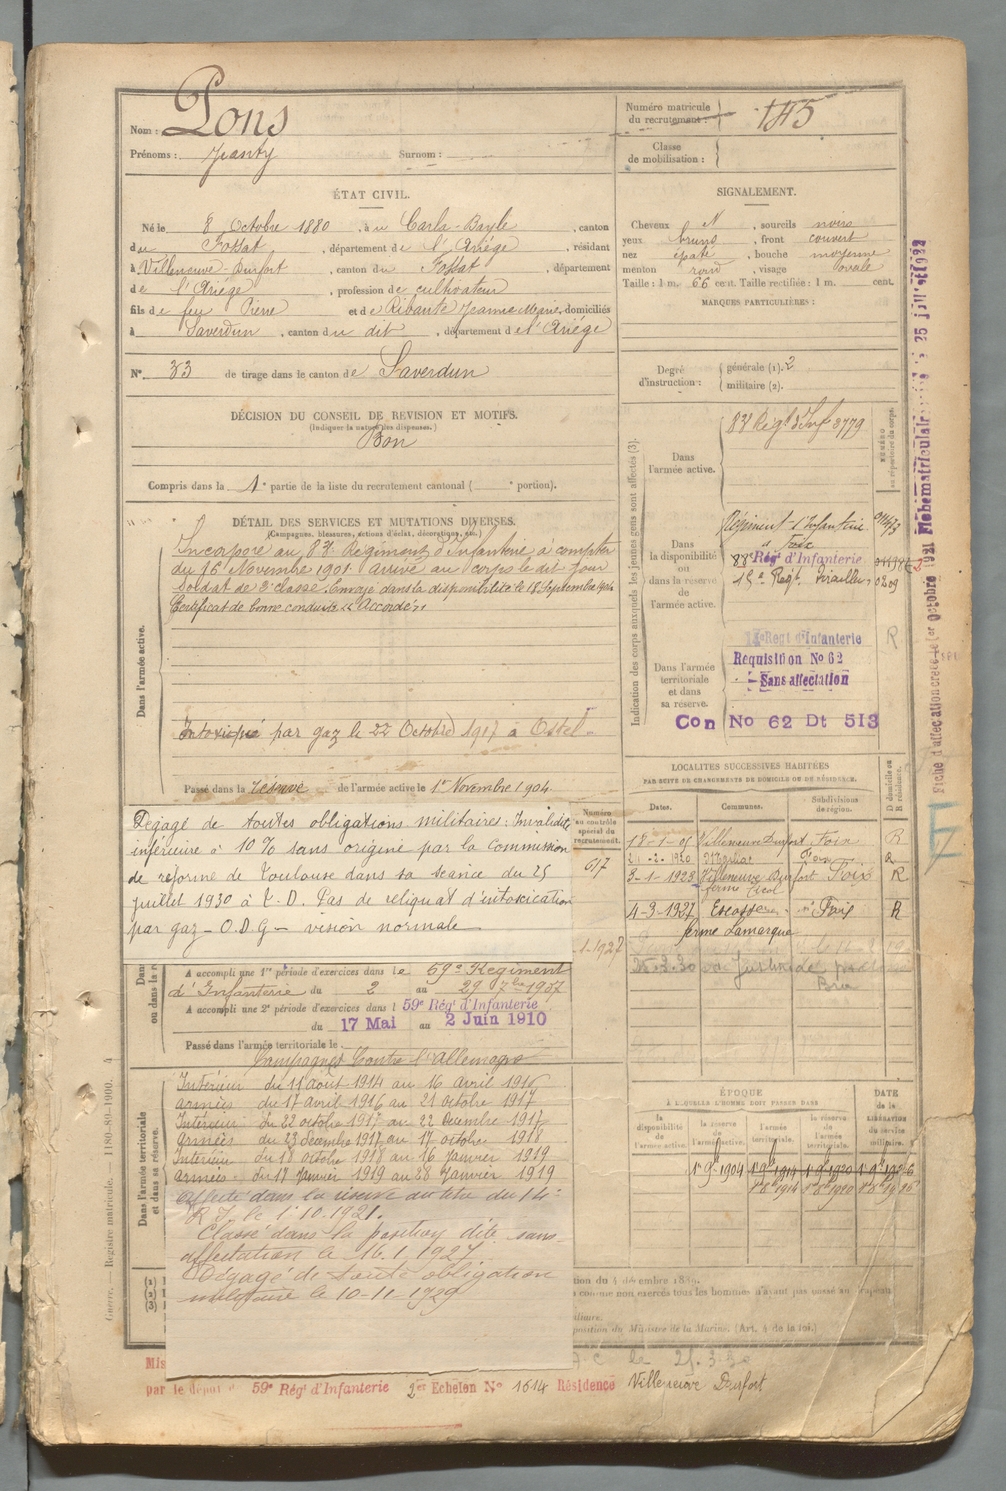 Nom : Pons
Prénoms : Jeanty Surnom :
Numéro matricule
du recrutement : 145
Classe
de mobilisation :
ÉTAT CIVIL.
Né le 8 Octobre 1880, à Carla-Bayle, canton
du Fossat, département de l'Ariège, résidant
à Villeneuve-Durfort, canton du Fossat, département
de l'Ariège, profession de cultivateur
fils de feu Pierre et de Ribaute Jeanne Marie, domiciliés
à Saverdun, canton du dit, département de l'Ariége
N° 33 de tirage dans le canton de Saverdun
SIGNALEMENT.
Cheveux N, sourcils noirs
yeux bruns, front couvert
nez épaté, bouche moyenne
menton rond, visage ovale
Taille : 1 m. 66 cent. Taille rectifiée : 1 m. cent.
MARQUES PARTICULIÈRES :
Degré
d'instruction :
générale (1). 2
militaire (2).
DÉCISION DU CONSEIL DE REVISION ET MOTIFS.
(Indiquer la nature des dispenses.)
Bon
Compris dans la 1e partie de la liste du recrutement cantonal ( e portion).
DÉTAIL DES SERVICES ET MUTATIONS DIVERSES.
(Campagnes, blessures, actions d'éclat, décorations, etc.)
Dans l'armée active.
Incorporé au 83e Régiment d'Infanterie à compter
du 16 Novembre 1901. Arrivé au corps le dit jour
soldat de 2e classe. Envoyé dans la disponibilité le 18 Septembre 1904
Certificat de bonne conduite "Accordé".
Intoxiqué par gaz le 22 Octobre 1917 à Ostel.
Passé dans la réserve de l'armée active le 1er Novembre 1904
Indication des corps auxquels les jeunes gens sont affectés (3).
Dans
l'armée active.
83e Régt d'Inf 3779
NUMÉRO
au répertoire du corps.
Dans
la disponibilité
ou
dans la réserve
de
l'armée active.
Régiment d'Infanterie
de Foix
88e Régt d'Infanterie
Dans l'armée
territoriale
et dans
sa réserve.
14e Régt d'Infanterie
R
Requisition No 62
Sans affectation
Con No 62 Dt 513
Dégagé de toutes obligations militaires : Invalidité
inférieure à 10 % sans origine par la Commission
de réforme de Toulouse dans sa séance du 25
juillet 1930 à T. D. Pas de reliquat d'intoxication
par gaz - O.D.G - vision normale
Numéro
au contrôle
spécial du
recrutement.
617
.1.1927
LOCALITÉS SUCCESSIVES HABITÉES
PAR SUITE DE CHANGEMENTS DE DOMICILE OU DE RÉSIDENCE.
Dates. Communes. Subdivisions de région. D domicile ou R résidence.
18-1-05 Villeneuve Durfort Foix R
21-2-1920 Foix R
3-1-1923 Villeneuve Durfort Foix R
4-3-1927 Escosse Foix R
ferme Lamarque
A accompli une 1re période d'exercices dans le 59e Régiment
d'Infanterie du 2 au 29 7bre 1907
A accompli une 2e période d'exercices dans l 59e Rég' d'Infanterie
du 17 Mai au 2 Juin 1910
Passé dans l'armée territoriale le
Campagnes Contre l'Allemagne
Dans l'armée territoriale
et dans sa réserve.
Intérieur du 11 août 1914 au 16 avril 1916
armées du 17 avril 1916 au 21 octobre 1917
Intérieur du 22 octobre 1917 au 22 décembre 1917
armées du 23 décembre 1917 au 17 octobre 1918
Intérieur du 18 octobre 1918 au 16 janvier 1919
armées du 17 janvier 1919 au 28 janvier 1919
affecté dans la réserve au titre du 14e
R.I. le 1er 10.1921.
Classé dans la position dite sans
affectation le 16.1.1927
Dégagé de toute obligation
militaire le 10-11-1929
ÉPOQUE
À LAQUELLE L'HOMME DOIT PASSER DANS
la
disponibilité
de
l'armée active.
la réserve
de
l'armée active.
l'armée
territoriale.
la réserve
de
l'armée
territoriale.
DATE
de la
LIBÉRATION
du service
militaire.
1er 9bre 1904 1er 9bre 1914 1er 9bre 1920 1er 9bre 1926
1er 8bre 1914 1er 8bre 1920 1er 8bre 1926
tion du 4 décembre 1889.
position du Ministre de la Marine. (Art. 4 de la loi.)
Mis
par le dépôt d 59e Rég' d'Infanterie 2er Echelon No 1614 Résidence Villeneuve Durfort
Guerre. — Registre matricule. — 1180-89-1900. 4